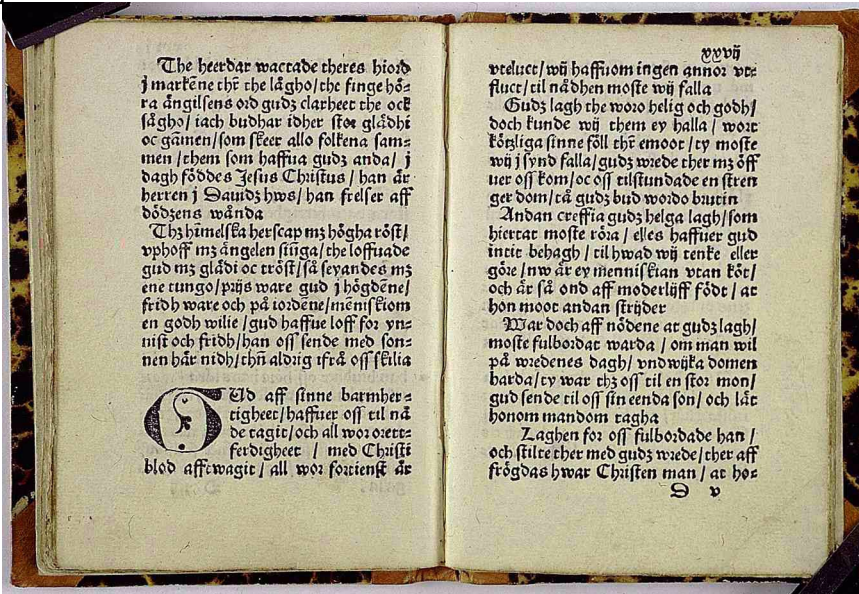 The heerdar wactade theres hiord
j markēne thr̄ the lågho/the finge hö-
ra ängilsens ord gudz clarheet the ock
sågho/ iach budhar idher stor glädhi
oc gāmen/som skeer allo folkena sam-
men/them som haffua gudz anda/ j
dagh föddes Jesus Christus/ han är
herren j Dauidz hws/ han frelser aff
dödzens wånda
Thz hīmelska herscap mz högha röst/
vphoff mz ängelen siūga/the loffuade
gud mz glädi oc tröst/så seyandes mz
ene tungo/prijs ware gud j högdēne/
fridh ware och på iordēne/mēniskiom
en godh wilie/gud haffue loff for yn-
nist och fridh/han oss sende med son-
nen här nidh/thn̄ aldrig ifrå oss skilia
GUd aff sinne barmher-
tigheet/haffuer oss til nå
de tagit/och all wor orett-
ferdigheet / med Christi
blod afftwagit/ all wor fortienst är
xxvij
vteluct/wij haffuom ingen annor vt-
fluct/til nådhen moste wij falla
Gudz lagh the woro helig och godh/
doch kunde wij them ey halla / wort
kötzliga sinne föll thr̄ emoot/ty moste
wij j synd falla/gudz wrede ther mz öff
uer oss kom/oc oss tilstundade en stren
ger dom/tå gudz bud wordo brutin
Andan creffia gudz helga lagh/som
hiertat moste röra / elles haffuer gud
intit behagh / til hwad wij tenke eller
göre/nw är ey menniskian vtan köt/
och är så ond aff moderlijff födt / at
hon moot andan strijder
War doch aff nödene at gudz lagh/
moste fulbordat warda / om man wil
på wredenes dagh/ vndwijka domen
harda/ty war thz oss til en stor mon/
gud sende til oss sin eenda son/ och lät
honom mandom tagha
Laghen for oss fulbordade han /
och stilte ther med gudz wrede/ther aff
frögdas hwar Christen man / at hon-
D v